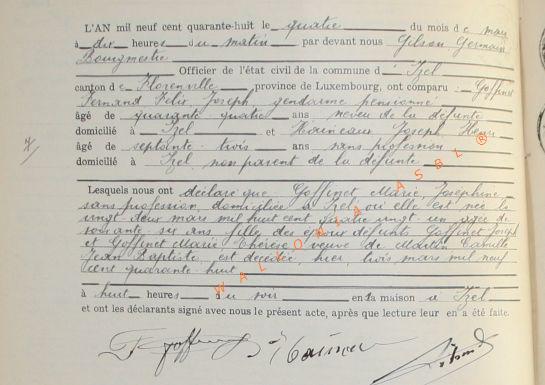 L'AN mil neuf cent quarante-huit le quatre du mois de mars
à dix heures du matin par devant nous Gilson, Germain
Bourgmestre
Officier de l'état civil de la commune d' Izel
canton de Florenville, province de Luxembourg, ont comparu : Goffinet
Fernand Félix Joseph gendarme pensionné
âgé de quarante quatre ans neveu de la défunte
domicilié à Izel et Hainaux Joseph Henri
âgé de septante trois ans sans profession
domicilié à Izel non parent de la défunte
7
Lesquels nous ont déclaré que Goffinet Marie, Joséphine
sans profession, domiciliée à Izel où elle est née le
vingt deux mars mil huit cent quatre vingt un agée de
soixante six ans, fille des époux défunts Goffinet Joseph
et Goffinet Marie Thérèse, veuve de Martin Camille
Jean Baptiste, est décédée, hier, trois mars mil neuf
cent quarante huit
à huit heures du soir en sa maison à Izel
et ont les déclarants signé avec nous le présent acte, après que lecture leur en a été faite.
WALLONIA ASBL ®